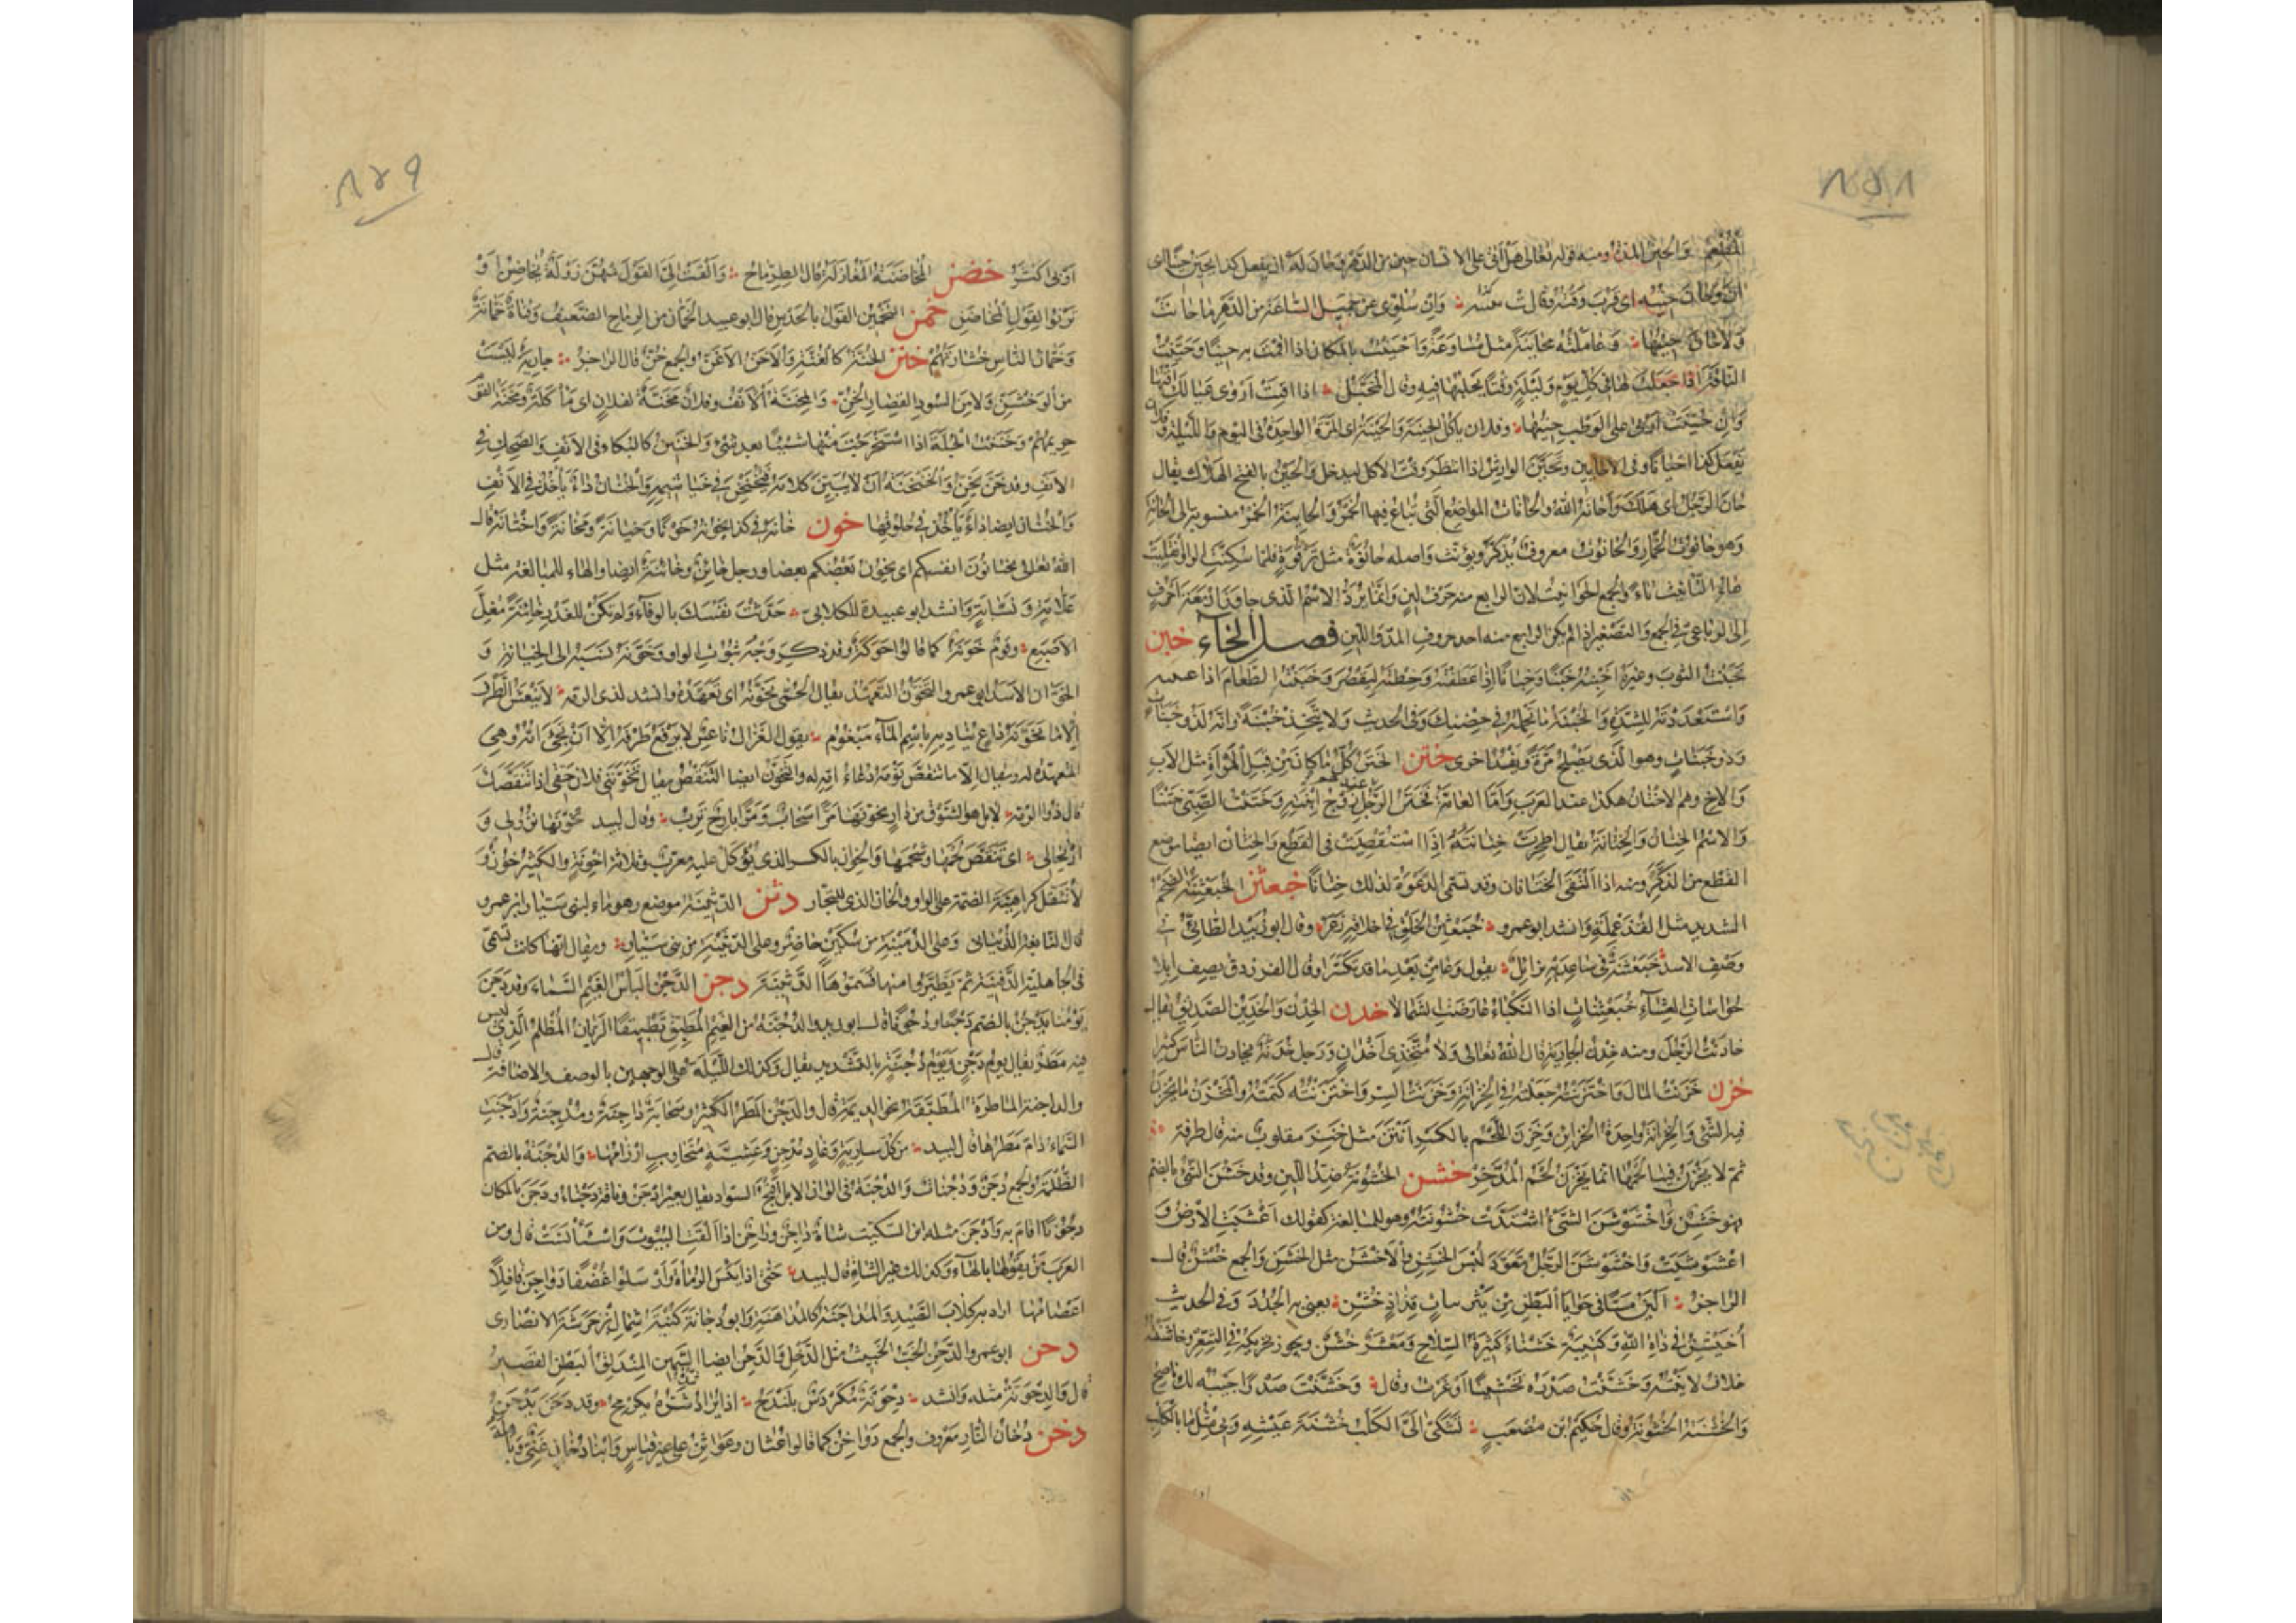 ٨٥٨
وَالحِينُ المدّة ومنه قوله تعالى هَل اَتى على الانسان حين من الدهر وحانَ لَهُ ان يفعل كذا يحين حينًا اى
آنَ وحان حِينُه اى قرب وقته وقالت بثينة وَاِنّ سُلوّى عن جميل لساعة من الدهر ما حانت
ولا حان حينها وعاملته محاينة مثل مساوعة وَاحينت بالمكان اذا اقمت به حينا وحيّنت
الناقة اذا جعلت لها فى كل يوم وليلة وقتا تحلبها فيه وقال المخبّل اذا افنت اروى عيالك افنها
وان حينت اربى على الوطب حينها وفلان ياكل الحِينة والحَينة اى المرة الواحدة فى اليوم والليلة
يفعل كذا احيانا وفى الاحايين وتحيّن الوارش اذا انتظر وقت الاكل ليدخل والحَين بالفتح الهلاك يقال
حان الرجل اى هلك واحانه الله والحانات المواضع التى تباع فيها الخمر والحانية الخمر منسوبة الى الحانة
وهو حانوت الخمار والحانوت معروف يذكر ويؤنث واصله حانُوَة مثل ترقوة فلما سكنت الواو انقلبت
هاء التانيث تاء والجمع الحوانيت لان الرابع منه حرف لين وانما يُردّ الاسم الذى جاوز اربعة احرف
الى الرباعى فى الجمع والتصغير اذا لم يكن الرابع منه احد حروف المدّ واللين فصل الخاء خبن
خبنت الثوب وغيره اخبنه خبنا وخبانا اذا عطفته وخطته ليقصر وخبنت الطعام اذا غيبته
واستعددته للشدة والخُبنة ما تحمله فى حضنك وفى الحديث ولا يتخذ خبنة وانه لذو خبنات
وذو خبنات وهو الذى يصلح مرة ويفسد اخرى ختن الختن كل ما كان من قبل المراة مثل الاب
والاخ وهم الاختان هكذا عند العرب وامّا العامة فختن الرجل زوج ابنته وختنت الصبى ختنا
والاسم الختان والختانة يقال اطحرت ختانته اذا استقصيت فى القطع والختان ايضا موضع
القطع من الذكر ومنه اذا التقى الختانان وقد تسمى الدعوة لذلك ختانا خبعثن الخبعثنة الضخم
الشديد مثل القذعملة وانشد ابو عمرو خبعثن الخلق فى اخلاقه زعر وقال ابو زبيد الطائى فى
وصف الاسد خبعثنة فى ساعديه تزايل يقول وعا من بعد ما قد تكسّرا وقال الفرزدق يصف ابلا
حواسات العشاء خبعثنات اذا النكباء عارضت الشمالا خدن الخدن والخدين الصديق يقال
خادنت الرجل ومنه خدن الجارية قال الله تعالى ولا متّخذى اخدان ورجل خدنة يخادن الناس كثيرا
خزن خزنت المال واختزنته جعلته فى الخزانة وخزنت السر واختزنته كتمته والمخزن ما يخزن
فيه الشئ والخزانة واحدة الخزائن وخزن اللحم بالكسر انتن مثل خنز مقلوب منه قال طرفة
ثم لا يخزن فينا لحمها انما يخزن لحم المدّخر خشن الخشونة ضد اللين وقد خشن الشئ بالضم
فهو خشن واخشوشن الشئ اشتدت خشونته وهو للمبالغة كقولك اعشبت الارض و
اعشوشبت واخشوشن الرجل تعوّد لبس الخشن والاخشن مثل الخشن والجمع خشن قال
الراجز الين مسا فى حوايا البطن من يثربيات قذاذ خشن يعنى به الجدد وفى الحديث
اخيشن فى ذات الله وكتيبة خشناء كثيرة السلاح ومعشر خشن ويجوز تحريكه فى الشعر وخاشنته
خلاف لاينته وخشّنت صدره تخشينا اوغرت وقال وخشّنت صدرا جيبه لك ناصح
والخشنة الخشونة وقال حكيم بن مصعب تشكّى الىّ الكلب خشنة عيشه وبى مثل ما بالكلب
٨٥٩
او بى اكثر خضن المخاضنة المغازلة قال الطرماح والقت الىّ القول منهن زولة تخاضن او
ترنوا لقول المخاضن خمن التخمين القول بالحدس قال ابو عبيد الخمّان من الرماح الضعيف وقناة خمّانة
وخمّان الناس خشارتهم خنن الخنّة كالغنّة والاخنّ الاغنّ والجمع خنّ قال الراجز جارية ليست
من الوخشن ولا من السود القصار الخنّ والمخنّة الانف وفلان مخنة لفلان اى ماكلة ومخنة القوم
حريمهم وخننت الجلة اذا استخرجت منها شيئا بعد شئ والخنين كالبكاء فى الانف والضحك فى
الانف وقد خنّ يخنّ والخنخنة ان لا يبين كلامه فيخنخن فى خياشيمه والخنان داء ياخذ فى الانف
والخنان ايضا داء ياخذ الطير فى حلوقها خون خانه فى كذا يخونه خونا وخيانة ومخانة واختانه قال
الله تعالى تختانون انفسكم اى يخون بعضكم بعضا ورجل خائن وخائنة ايضا والهاء للمبالغة مثل
علامة ونسابة وانشد ابو عبيدة للكلابى حدّثت نفسك بالوفاء ولم تكن للغدر خائنة مغلّ
الاصبع وقوم خونة كما قالوا حوكة وقد ذكر وجه ثبوت الواو وخوّنه نسبه الى الخيانة و
الخوّان الاسد ابو عمرو التخوّن التعهد يقال الحمّى تخوّنه اى تعهّده وانشد لذى الرمة لا ينعش الطرف
الا ما تخوّنه داع يناديه باسم الماء مبغوم يقول الغزال ناعس لا يرفع طرفه الا ان تجئ امه وهى
المتعهدة له ويقال الا ما تنقص نومه دعاء امه له والتخوّن ايضا التنقص يقال تخوّننى فلان حقى اذا تنقصك
قال ذو الرمة لا بل هو الشوق من دار تخوّنها مرّا سحاب ومرّا بارح ترب وقال لبيد تخوّنها نزولى و
ارتحالى اى تنقص لحمها وشحمها والخوان بالكسر الذى يؤكل عليه معرّب وثلاثة اخونة والكثير خون و
لا تثقل كراهية الضمة على الواو والخان الذى للتجار دثن الدثينة موضع وهو ماء لبنى سيّار ابن عمرو
قال النابغة الذبيانى وعلى الرميثة من سكين حاضر وعلى الدثينة من بنى سيّار ويقال انها كانت تسمّى
فى الجاهلية الدفينة ثم تطيّروا منها فسمّوها الدثينة دجن الدجن الباس الغيم السماء وقد دجن
يومنا يدجن بالضم دجنا ودجونا قال ابو زيد والدجنّة من الغيم المطبق تطبيقا الريان المظلم الذى ليس
فيه مطر يقال يوم دجن ويوم دجنّة بالتشديد يقال وكذلك الليلة على الوجهين بالوصف والاضافة قال
والداجنة الماطرة المطبقة نحو الديمة قال والدجن المطر الكثير وسحابة داجنة ومدجنة وادجنت
السماء دام مطرها قال لبيد من كل سارية وغاد مدجن وعشية متجاوب ارزامها والدجنة بالضم
الظلمة والجمع دجن ودجنات والدجنة فى الوان الابل اقبح السواد يقال بعير ادجن وناقة دجناء ودجن بالمكان
دجونا اقام به وادجن مثله ابن السكيت شاة داجن وراجن اذا الفت البيوت واستانست قال ومن
العرب من يقولها بالهاء وكذلك غير الشاة قال لبيد حتى اذا يئس الرماة وارسلوا غضفا دواجن قافلا
اعصامها اراد به كلاب الصيد والمداجنة كالمداهنة وابو دجانة كنية سماك بن خرشة الانصارى
دحن ابو عمرو الدحن الخبّ الخبيث مثل الدحل والدحن ايضا السمين المندلق البطن القصير
قال والدحونة مثله وانشد دحونة مكردس بلندح اذا يراد شده يكرمح وقد دحن يدحن
دخن دخان النار معروف والجمع دواخن كما قالوا عثان وعواثن على غير قياس وابنا دخان غنىّ وباهلة